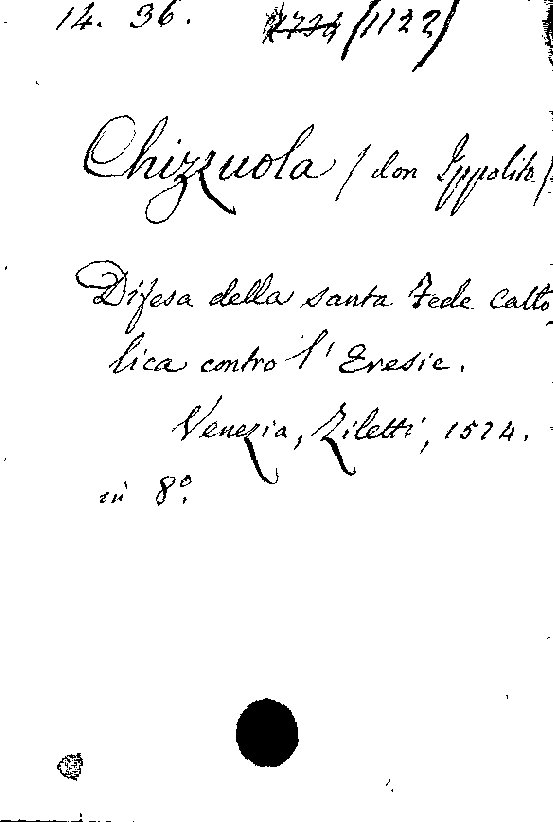 14. 36. 2732 (1122)
Chizzuola / don Ippolito /
Difesa della santa Fede catto
lica contro l'Eresie.
Venezia, Ziletti, 1574.
in 8º.